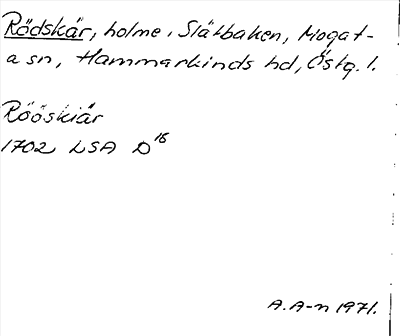 Rödskär, holme i Slätbaken, Mogat-
a sn, Hammarkinds hd, Östg. l.
Rööskiär
1702 LSA D16
A. A-n 1971.